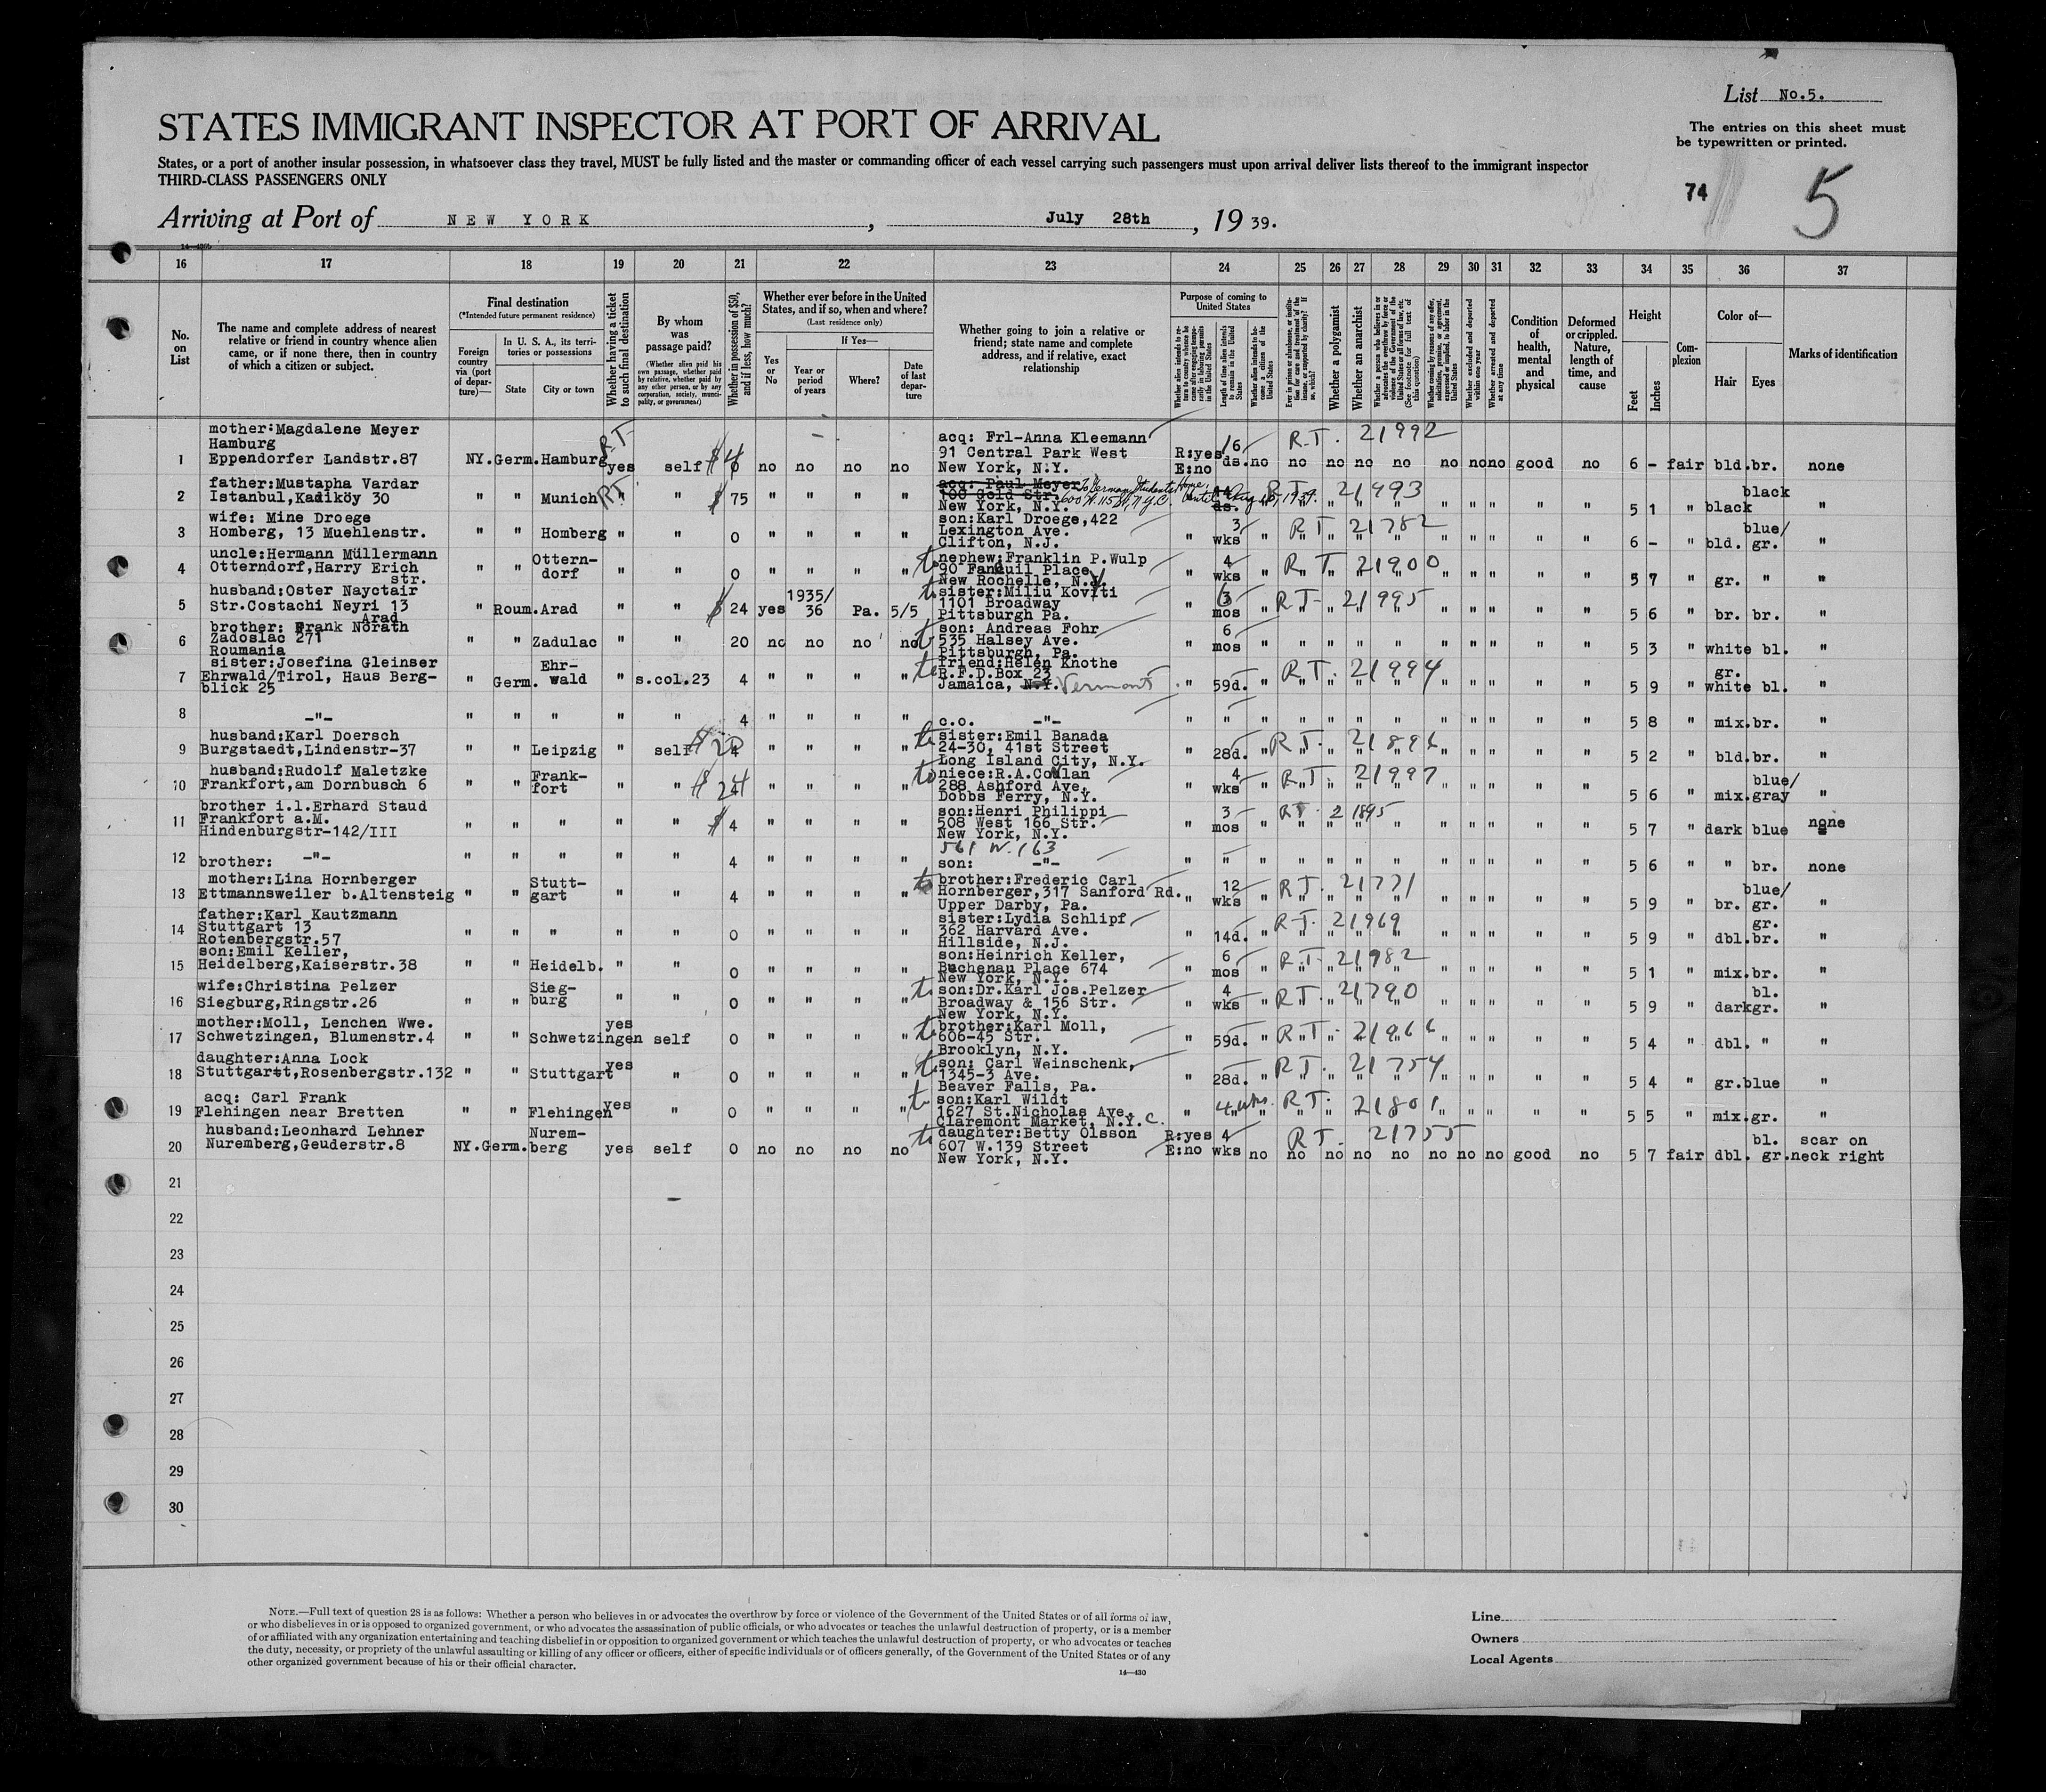 List No.5.
STATES IMMIGRANT INSPECTOR AT PORT OF ARRIVAL
The entries on this sheet must
be typewritten or printed.
States, or a port of another insular possession, in whatsoever class they travel, MUST be fully listed and the master or commanding officer of each vessel carrying such passengers must upon arrival deliver lists thereof to the immigrant inspector
THIRD-CLASS PASSENGERS ONLY
74 5
Arriving at Port of NEW YORK, July 28th, 1939.
16 17 18 19 20 21 22 23 24 25 26 27 28 29 30 31 32 33 34 35 36 37
No. on List
The name and complete address of nearest relative or friend in country whence alien came, or if none there, then in country of which a citizen or subject.
Final destination
(*Intended future permanent residence)
Foreign country via (port of departure)—
In U. S. A., its territories or possessions
State City or town
Whether having a ticket to such final destination
By whom was passage paid?
(Whether alien paid his own passage, whether paid by relative, whether paid by any other person, or by any corporation, society, municipality, or government)
Whether in possession of $50, and if less, how much?
Whether ever before in the United States, and if so, when and where?
(Last residence only)
Yes or No
If Yes—
Year or period of years Where? Date of last departure
Whether going to join a relative or friend; state name and complete address, and if relative, exact relationship
Purpose of coming to United States
Length of time alien intends to remain in the United States
Whether a polygamist
Whether an anarchist
Whether excluded and deported within one year
Whether arrested and deported at any time
Condition of health, mental and physical
Deformed or crippled. Nature, length of time, and cause
Height
Feet Inches
Complexion
Color of—
Hair Eyes
Marks of identification
mother:Magdalene Meyer
Hamburg
1 Eppendorfer Landstr.87 NY. Germ. Hamburg R.T. yes self $4 no no no no acq: Frl-Anna Kleemann
91 Central Park West
New York, N.Y. R:yes E:no 16 ds. no R.T. 21992 no no no no no no no good no 6 - fair bld. br. none
father:Mustapha Vardar
2 Istanbul,Kadiköy 30 " " Munich R.T. " " $75 " " " " acq: Paul Meyer
100 Gold Str.
New York, N.Y. To German Students Home, 600 W. 115 St, N.Y.C. until Aug 15, 1939. R.T. 21993 " " 5 1 " black black "
wife: Mine Droege
3 Homberg, 13 Muehlenstr. " " Homberg " " 0 " " " " son:Karl Droege,422
Lexington Ave.
Clifton, N.J. " 3 wks " R T 21782 " " 6 - " bld. blue/gr. "
uncle:Hermann Müllermann
4 Otterndorf,Harry Erich
str. " " Otterndorf " " 0 " " " " to nephew:Franklin P.Wulp
90 Fanquil Place
New Rochelle, N.Y. " 4 wks " R T 21900 " " 5 7 " gr. " "
husband:Oster Nayctair
5 Str.Costachi Neyri 13
Arad " Roum. Arad " " $24 yes 1935/36 Pa. 5/5 to sister:Miliu Koviti
1101 Broadway
Pittsburgh Pa. " 3 mos " R T 21995 " " 5 6 " br. br. "
brother: Frank Norath
6 Zadoslac 271
Roumania " " Zadulac " " 20 no no no no to son: Andreas Fohr
535 Halsey Ave.
Pittsburgh, Pa. " 6 mos " " " 5 3 " white bl. "
sister:Josefina Gleinser
7 Ehrwald/Tirol, Haus Berg-
blick 25 " Germ. Ehrwald " s.col.23 4 " " " " to friend:Helen Knothe
R.F.D.Box 23
Jamaica, N.Y. Vermont " 59d. " R.T. 21994 " " 5 9 " gr. white bl. "
8 -"- " " " " " 4 " " " " c.o. -"- " " " " " 5 8 " mix. br. "
husband:Karl Doersch
9 Burgstaedt,Lindenstr-37 " " Leipzig " self $20 " " " " to sister:Emil Banada
24-30, 41st Street
Long Island City, N.Y. " 28d. " R T. 21896 " " 5 2 " bld. br. "
husband:Rudolf Maletzke
10 Frankfort,am Dornbusch 6 " " Frankfort " " $24 " " " " to niece:R.A.Conlan
288 Ashford Ave.
Dobbs Ferry, N.Y. " 4 wks " R.T. 21997 " " 5 6 " mix. blue/gray "
brother i.l.Erhard Staud
11 Frankfort a.M.
Hindenburgstr-142/III " " " " " $4 " " " " son:Henri Philippi
508 West 166 Str.
New York, N.Y.
561 W. 163 " 3 mos " RT 21895 " " 5 7 " dark blue none
12 brother: -"- " " " " " 4 " " " " son: -"- " " " " " 5 6 " " br. none
mother:Lina Hornberger
13 Ettmannsweiler b.Altensteig " " Stuttgart " " 4 " " " " to brother:Frederic Carl
Hornberger,317 Sanford Rd.
Upper Darby, Pa. " 12 wks " R T. 21771 " " 5 9 " br. blue/gr. "
father:Karl Kautzmann
14 Stuttgart 13
Rotenbergstr.57 " " " " " 0 " " " " sister:Lydia Schlipf
362 Harvard Ave.
Hillside, N.J. " 14d. " R.T. 21969 " " 5 9 " dbl. gr. br. "
son:Emil Keller,
15 Heidelberg,Kaiserstr.38 " " Heidelb. " " 0 " " " " son:Heinrich Keller,
Buchenau Place 674
New York, N.Y. " 6 mos " R.T. 21982 " " 5 1 " mix. br. "
wife:Christina Pelzer
16 Siegburg,Ringstr.26 " " Siegburg " " 0 " " " " to son:Dr.Karl Jos.Pelzer
Broadway & 156 Str.
New York, N.Y. " 4 wks " R T. 21790 " " 5 9 dark bl. gr. "
mother:Moll, Lenchen Wwe.
17 Schwetzingen, Blumenstr.4 " " Schwetzingen yes self 0 " " " " to brother:Karl Moll,
606-45 Str.
Brooklyn, N.Y. " 59d. " R.T. 21966 " " 5 4 " dbl. " "
daughter:Anna Lock
18 Stuttgartt,Rosenbergstr.132 " " Stuttgart yes " 0 " " " " to son: Carl Weinschenk,
1345-3 Ave.
Beaver Falls, Pa. " 28d. " R T. 21754 " " 5 4 " gr. blue "
acq: Carl Frank
19 Flehingen near Bretten " " Flehingen yes " 0 " " " " to son:Karl Wildt
1627 St.Nicholas Ave.
Claremont Market, N.Y.C. " 4 wks. " R T. 21801 " " 5 5 " mix. gr. "
husband:Leonhard Lehner
20 Nuremberg,Geuderstr.8 NY. Germ. Nuremberg yes self 0 no no no no to daughter:Betty Olsson
607 W.139 Street
New York, N.Y. R:yes E:no 4 wks no R T. 21755 no no no no no no no good no 5 7 fair dbl. bl. gr. scar on neck right
21
22
23
24
25
26
27
28
29
30
NOTE.—Full text of question 28 is as follows: Whether a person who believes in or advocates the overthrow by force or violence of the Government of the United States or of all forms of law,
or who disbelieves in or is opposed to organized government, or who advocates the assassination of public officials, or who advocates or teaches the unlawful destruction of property, or is a member
of or affiliated with any organization entertaining and teaching disbelief in or opposition to organized government or which teaches the unlawful destruction of property, or who advocates or teaches
the duty, necessity, or propriety of the unlawful assaulting or killing of any officer or officers, either of specific individuals or of officers generally, of the Government of the United States or of any
other organized government because of his or their official character.
14—430
Line
Owners
Local Agents